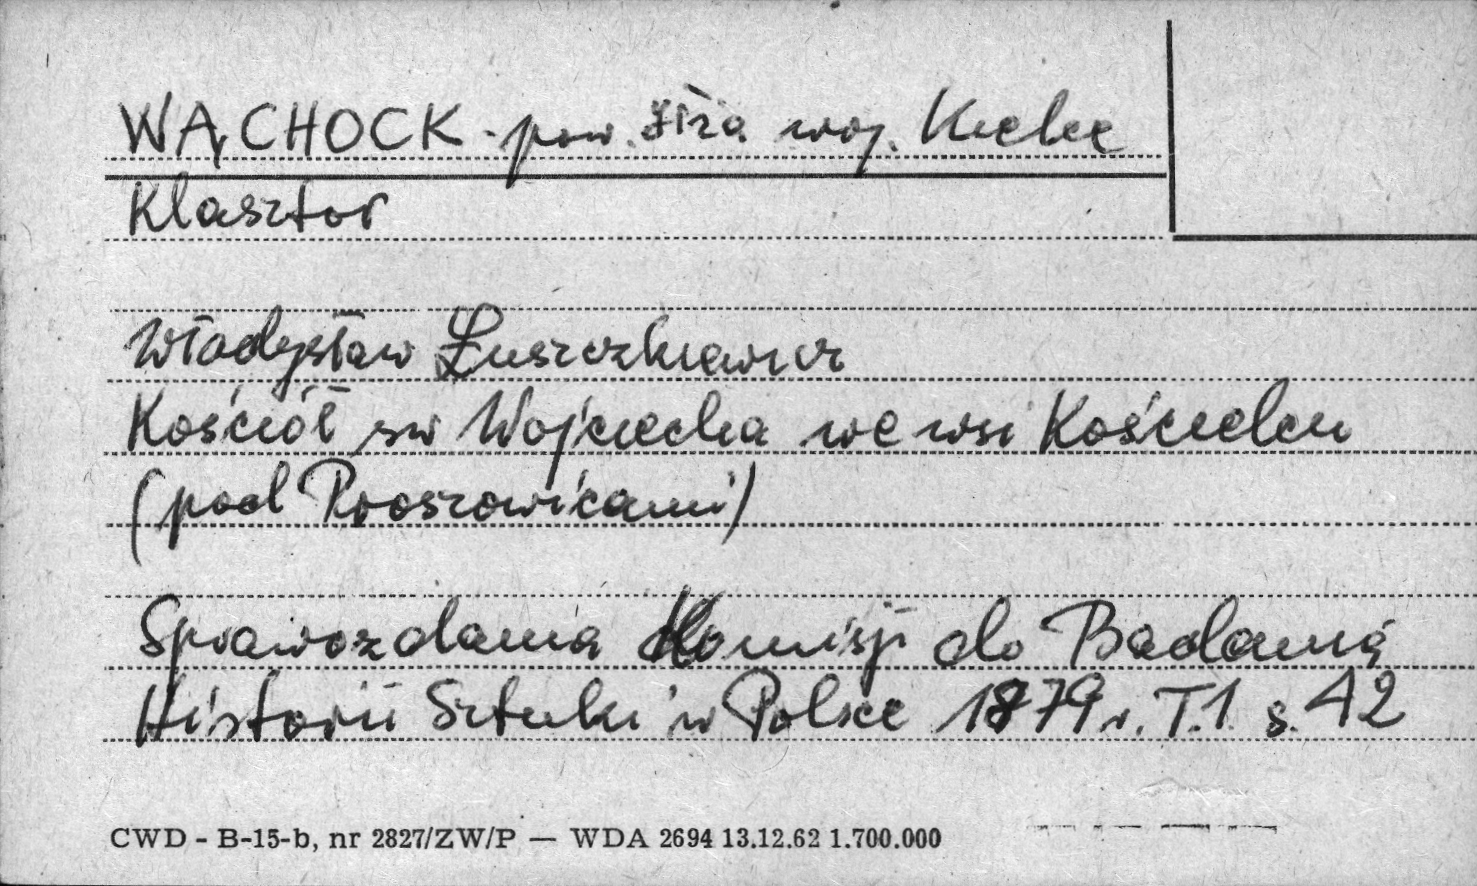 WĄCHOCK - pow. Iłża woj. Kielce
Klasztor
Władysław Łuszczkiewicz
Kościół św Wojciecha we wsi Kościelcu
(pod Proszowicami)
Sprawozdania Komisji do Badania
Historii Sztuki w Polsce 1879 r. T.1 s. 42
CWD - B-15-b, nr 2827/ZW/P — WDA 2694 13.12.62 1.700.000